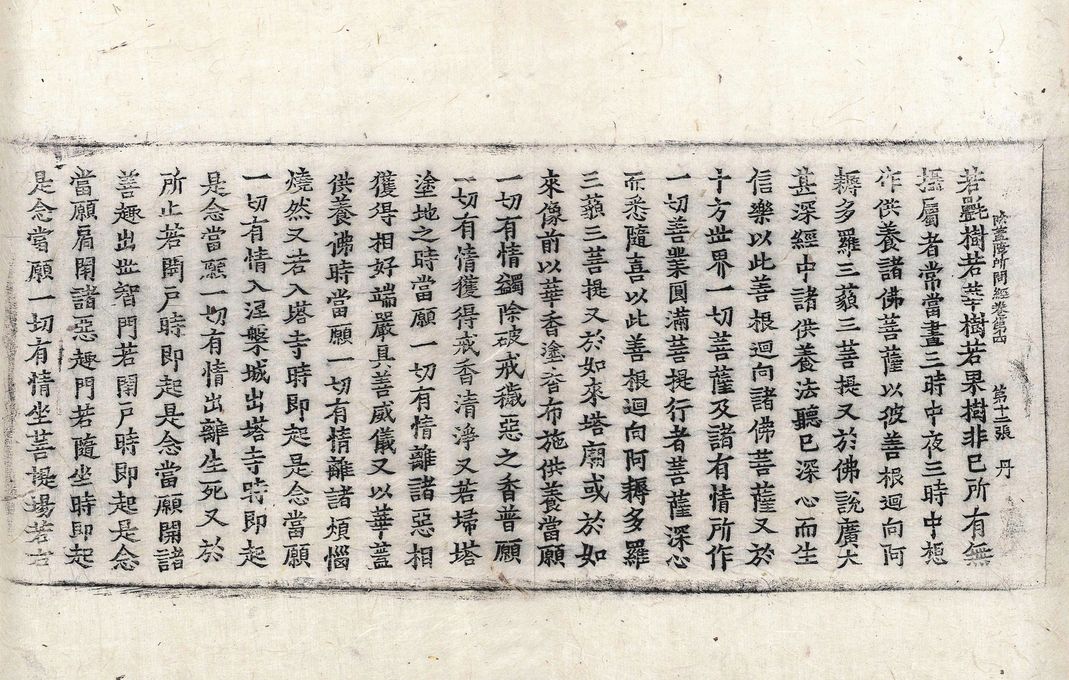 除蓋障所問經卷第四 第十二張 丹
若氎樹若華樹若果樹非已所有無
攝屬者常當晝三時中夜三時中想
作供養諸佛菩薩以彼善根迴向阿
耨多羅三藐三菩提又於佛說廣大
甚深經中諸供養法聽已深心而生
信樂以此善根迴向諸佛菩薩又於
十方世界一切菩薩及諸有情所作
一切善業圓滿菩提行者菩薩深心
而悉隨喜以此善根迴向阿耨多羅
三藐三菩提又於如來塔廟或於如
來像前以華香塗香布施供養當願
一切有情蠲除破戒穢惡之香普願
一切有情獲得戒香清淨又若埽塔
塗地之時當願一切有情離諸惡相
獲得相好端嚴具善威儀又以華蓋
供養佛時當願一切有情離諸煩惱
燒然又若入塔寺時即起是念當願
一切有情入涅槃城出塔寺時即起
是念當願一切有情出離生死又於
所止若開戶時即起是念當願開諸
善趣出世智門若閉戶時即起是念
當願扃閉諸惡趣門若隨坐時即起
是念當願一切有情坐菩提場若右